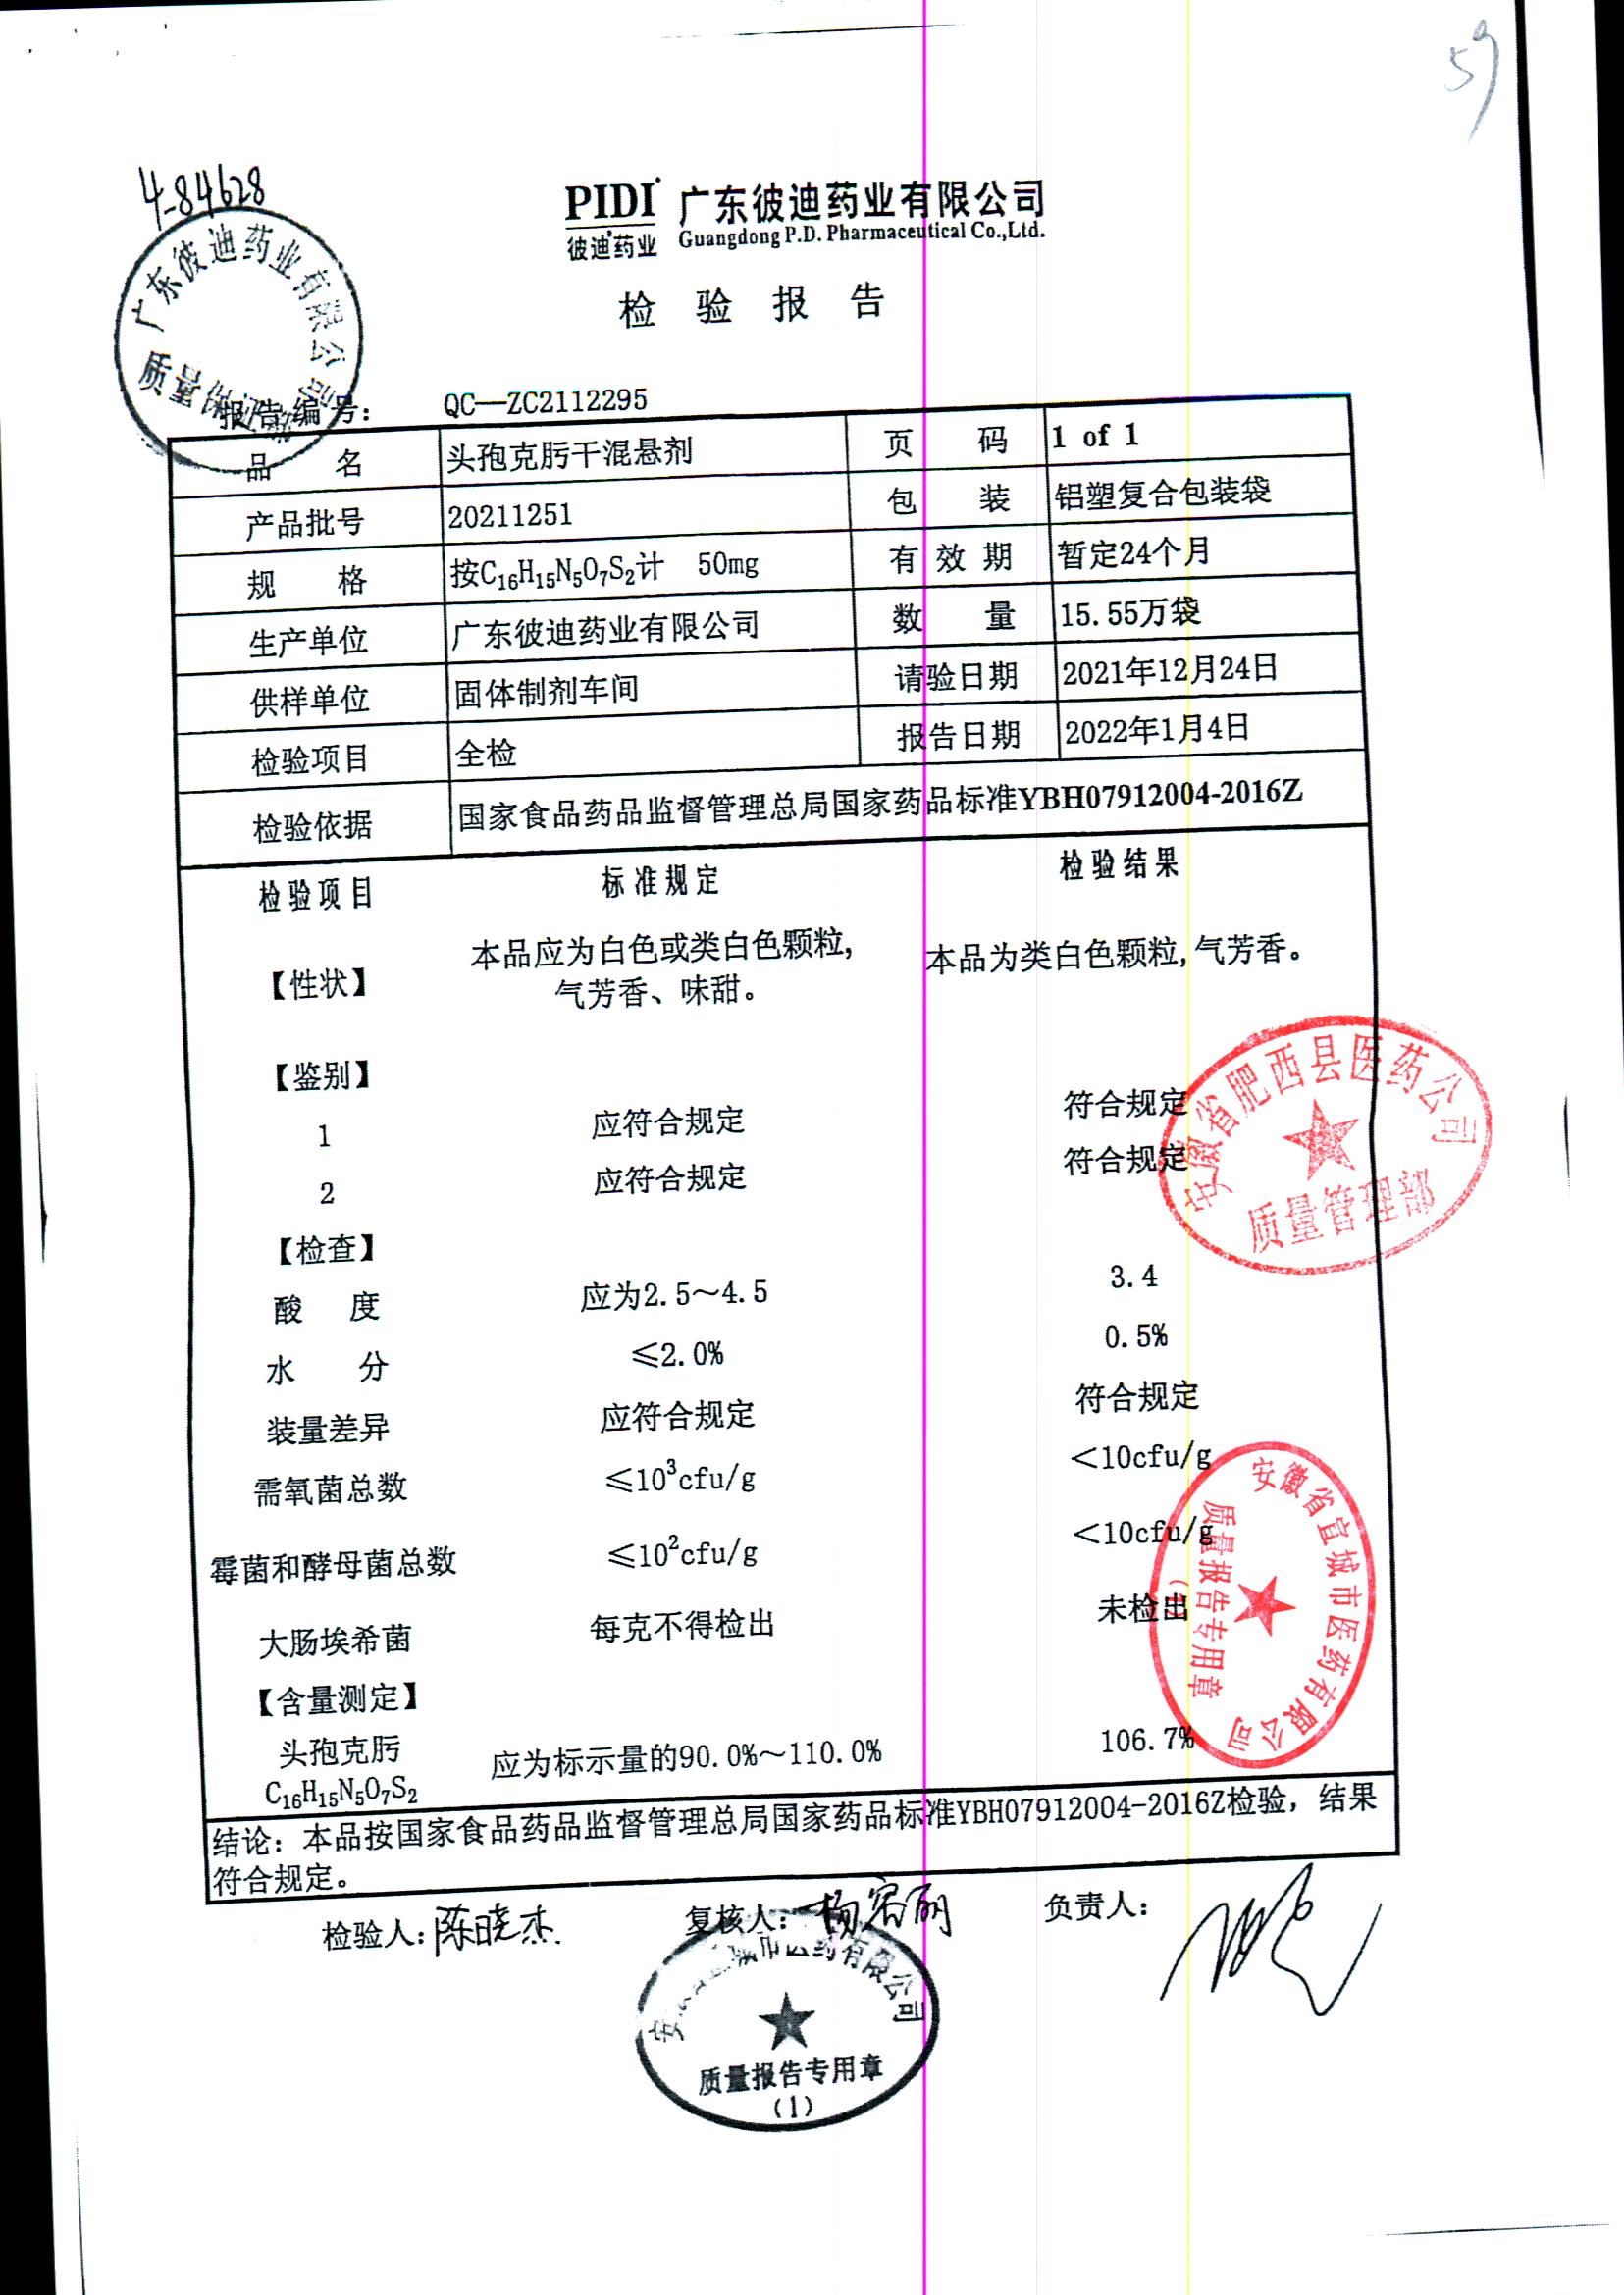 59
4-84628
PIDI 广东彼迪药业有限公司
彼迪药业 Guangdong P.D. Pharmaceutical Co.,Ltd.
检 验 报 告
广东彼迪药业有限公司
质量保证部
报告编号： QC—ZC2112295
品 名 头孢克肟干混悬剂 页 码 1 of 1
产品批号 20211251 包 装 铝塑复合包装袋
规 格 按C₁₆H₁₅N₅O₇S₂计 50mg 有 效 期 暂定24个月
生产单位 广东彼迪药业有限公司 数 量 15.55万袋
供样单位 固体制剂车间 请验日期 2021年12月24日
检验项目 全检 报告日期 2022年1月4日
检验依据 国家食品药品监督管理总局国家药品标准YBH07912004-2016Z
检验项目 标准规定 检验结果
【性状】 本品应为白色或类白色颗粒, 本品为类白色颗粒,气芳香。
气芳香、味甜。
【鉴别】
1 应符合规定 符合规定
2 应符合规定 符合规定
安徽省肥西县医药公司
质量管理部
【检查】
酸 度 应为2.5～4.5 3.4
水 分 ≤2.0% 0.5%
装量差异 应符合规定 符合规定
需氧菌总数 ≤10³cfu/g <10cfu/g
霉菌和酵母菌总数 ≤10²cfu/g <10cfu/g
大肠埃希菌 每克不得检出 未检出
安徽省宣城市医药有限公司
质量报告专用章
(1)
【含量测定】
头孢克肟 应为标示量的90.0%～110.0% 106.7%
C₁₆H₁₅N₅O₇S₂
结论：本品按国家食品药品监督管理总局国家药品标准YBH07912004-2016Z检验，结果
符合规定。
检验人：陈晓杰 复核人： 负责人：
医药有限公司
质量报告专用章
(1)